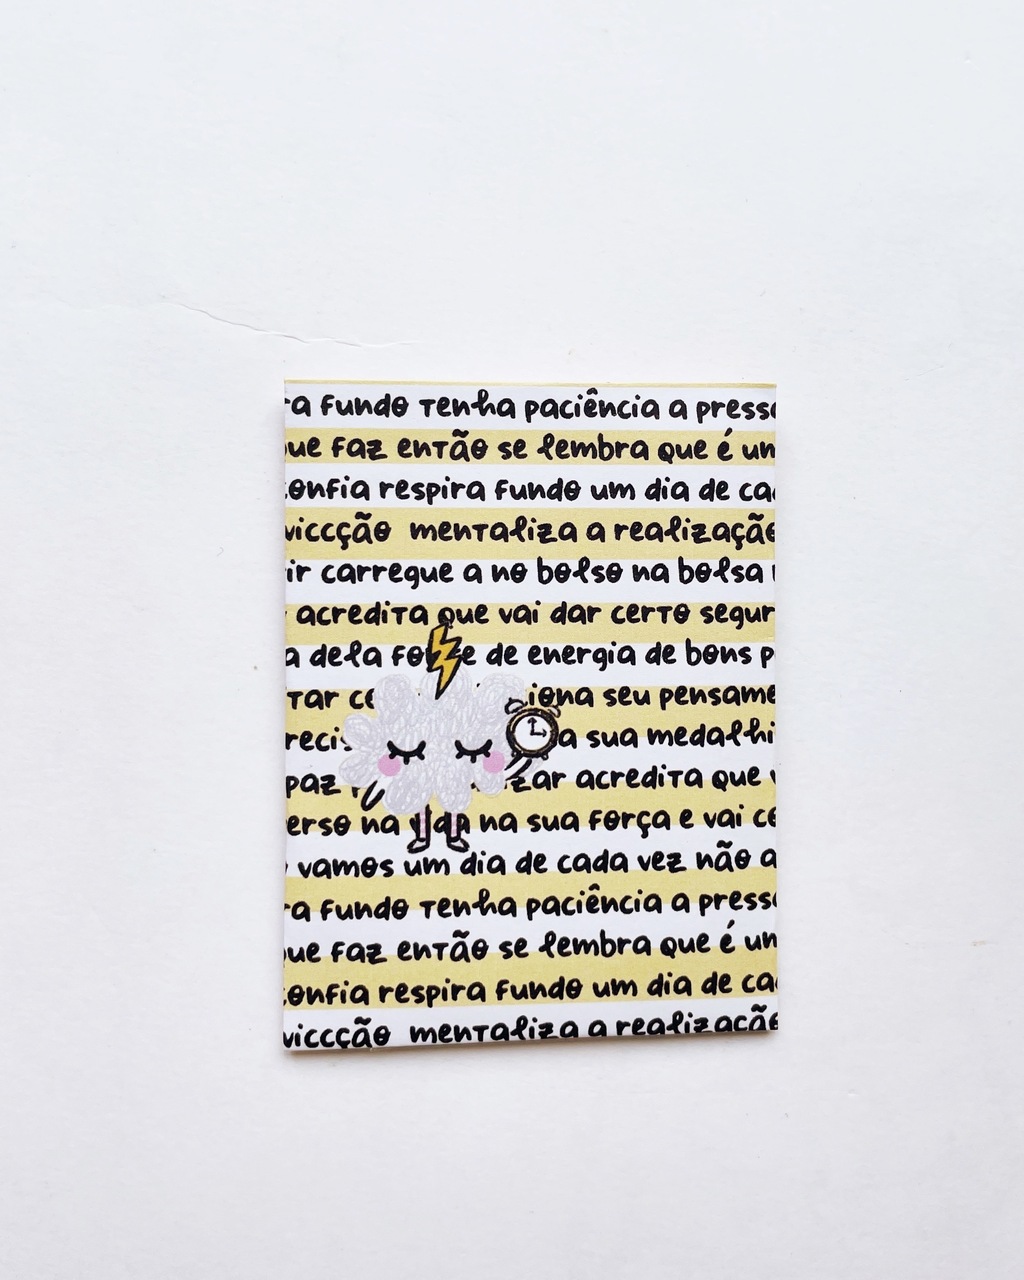 ra fundo tenha paciência a presse
que faz então se lembra que é um
confia respira fundo um dia de cad
viccção mentaliza a realização
ir carregue a no bolso na bolsa
acredita que vai dar certo segur
a dela de energia de bons p
tar iona seu pensame
precis a sua medalhi
paz zar acredita que
erso na vida na sua força e vai ce
vamos um dia de cada vez não a
ra fundo tenha paciência a presse
que faz então se lembra que é um
confia respira fundo um dia de cad
vicção mentaliza a realização